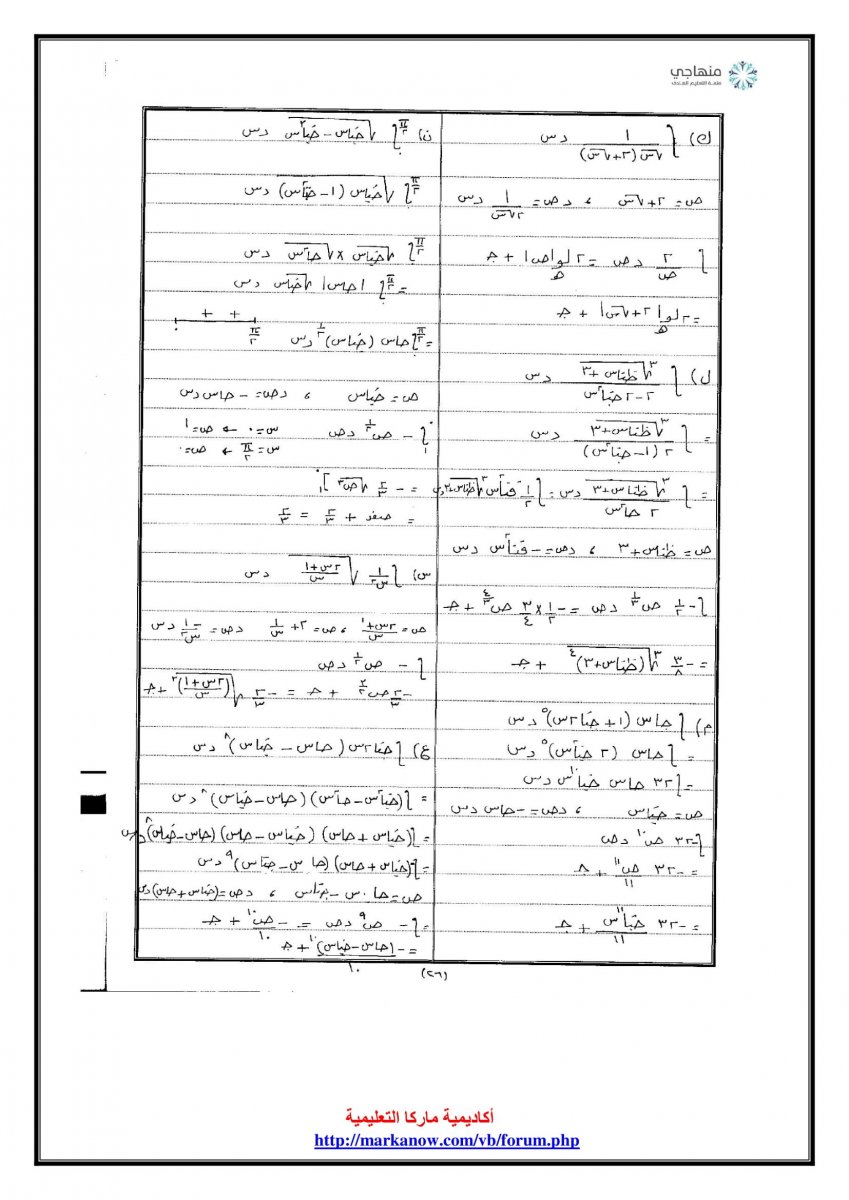 منهاجي
متعة التعليم الهادف
ك) ∫ ١/(√س (٢+√س)) دس
ص = ٢+√س ، دص = ١/(٢√س) دس
∫ ٢/ص دص = ٢ لو_هـ |ص| + جـ
= ٢ لو_هـ |٢+√س| + جـ
ل) ∫ ∛(ظتاس+٣)/(٢-٢جتا²س) دس
= ∫ ∛(ظتاس+٣)/(٢(١-جتا²س)) دس
= ∫ ∛(ظتاس+٣)/(٢جا²س) دس = ∫ ١/٢ قتا²س ∛(ظتاس+٣) دس
ص = ظتاس+٣ ، دص = -قتا²س دس
∫ -١/٢ ص^(١/٣) دص = -١/٢ × ٣/٤ ص^(٤/٣) + جـ
= -٣/٨ ∛(ظتاس+٣)^٤ + جـ
م) ∫ جاس (١+جتا٢س)^٥ دس
= ∫ جاس (٢جتا²س)^٥ دس
= ∫ ٣٢ جاس جتا^١٠س دس
ص = جتاس ، دص = -جاس دس
∫ -٣٢ ص^١٠ دص
= -٣٢ ص^١١/١١ + جـ
= -٣٢ جتا^١١س/١١ + جـ
ن) ∫_٠^(π/٢) √(جتاس-جتا³س) دس
∫^(π/٢) √(جتاس (١-جتا²س)) دس
∫^(π/٢) √جتاس × √جا²س دس
= ∫^(π/٢) |جاس| √جتاس دس
+ +
٠ π/٢
= ∫^(π/٢) جاس (جتاس)^(١/٢) دس
ص = جتاس ، دص = -جاس دس
∫_١^٠ -ص^(١/٢) دص
س=٠ ← ص=١
س=π/٢ ← ص=٠
= -٢/٣ √ص³ ]_١^٠
= صفر + ٢/٣ = ٢/٣
س) ∫ ١/س² √((٢س+١)/س) دس
ص = (٢س+١)/س ، ص = ٢+١/س دص = -١/س² دس
∫ -ص^(١/٢) دص
-٢/٣ ص^(٣/٢) + جـ = -٢/٣ √((٢س+١)/س)³ + جـ
ع) ∫ جتا٢س (جاس-جتاس)^٨ دس
= ∫ (جتا²س-جا²س) (جاس-جتاس)^٨ دس
= ∫ (جتاس+جاس) (جتاس-جاس) (جاس-جتاس)^٨ دس
= ∫ -(جتاس+جاس) (جاس-جتاس)^٩ دس
ص = جاس-جتاس ، دص = (جتاس+جاس) دس
= ∫ -ص^٩ دص = -ص^١٠/١٠ + جـ
= -(جاس-جتاس)^١٠/١٠ + جـ
(٢٦)
أكاديمية ماركا التعليمية
http://markanow.com/vb/forum.php